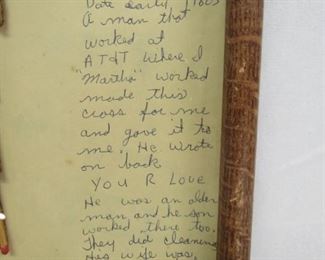 Date early 1980s
A man that
worked at
AT&T where I
"Martha" worked
made this
cross for me
and gave it to
me. He wrote
on back
YOU R LOVE
He was an older
man, and he son
worked there too.
They did cleaning
His wife was,